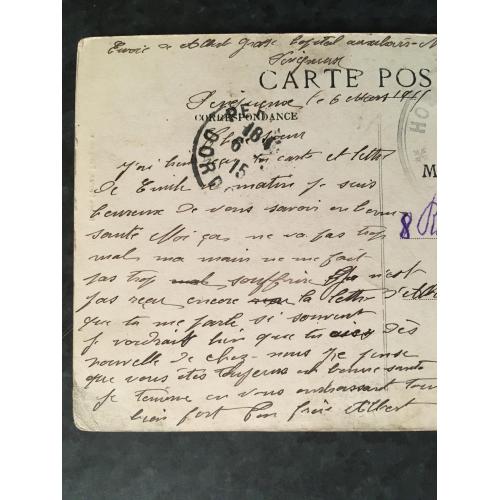 Envoie de Albert Grasse hopital auxiliaire
Périgueux
CARTE POS
Périgueux le 6 Mars 1915
CORRESPONDANCE
HO
18
6
15
DORD
M
8
J'ai bien reçu ta carte et lettre
de Emile ce matin je suis
heureux de vous savoir en bonne
santé Moi ça ne va pas trop
mal ma main ne me fait
pas trop mal souffrire n'est
pas reçu encore la lettre d'Alb
que tu me parle si souvent
je voudrait bien que tu aies dès
nouvelle de chez-nous Je pense
que vous êtes toujours en bonne santé
Je termine en vous embrassant tous
bien fort Ton frère Albert